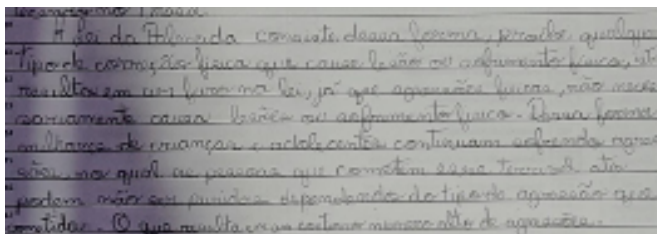 A Lei da Palmada consiste dessa forma, proibe qualquer
tipo de correção física que cause lesão ou sofrimento físico,
resulta em um furo na lei, já que agressões físicas, não neces
sariamente causa lesões ou sofrimento físico. Dessa forma
milhares de crianças e adolecentes continuam sofrendo agres
sões, no qual as pessoas que cometem esse terrivel ato
podem não ser punidos dependendo do tipo de agressão que
cometidas. O que resulta em um continuo numero alto de agressões.